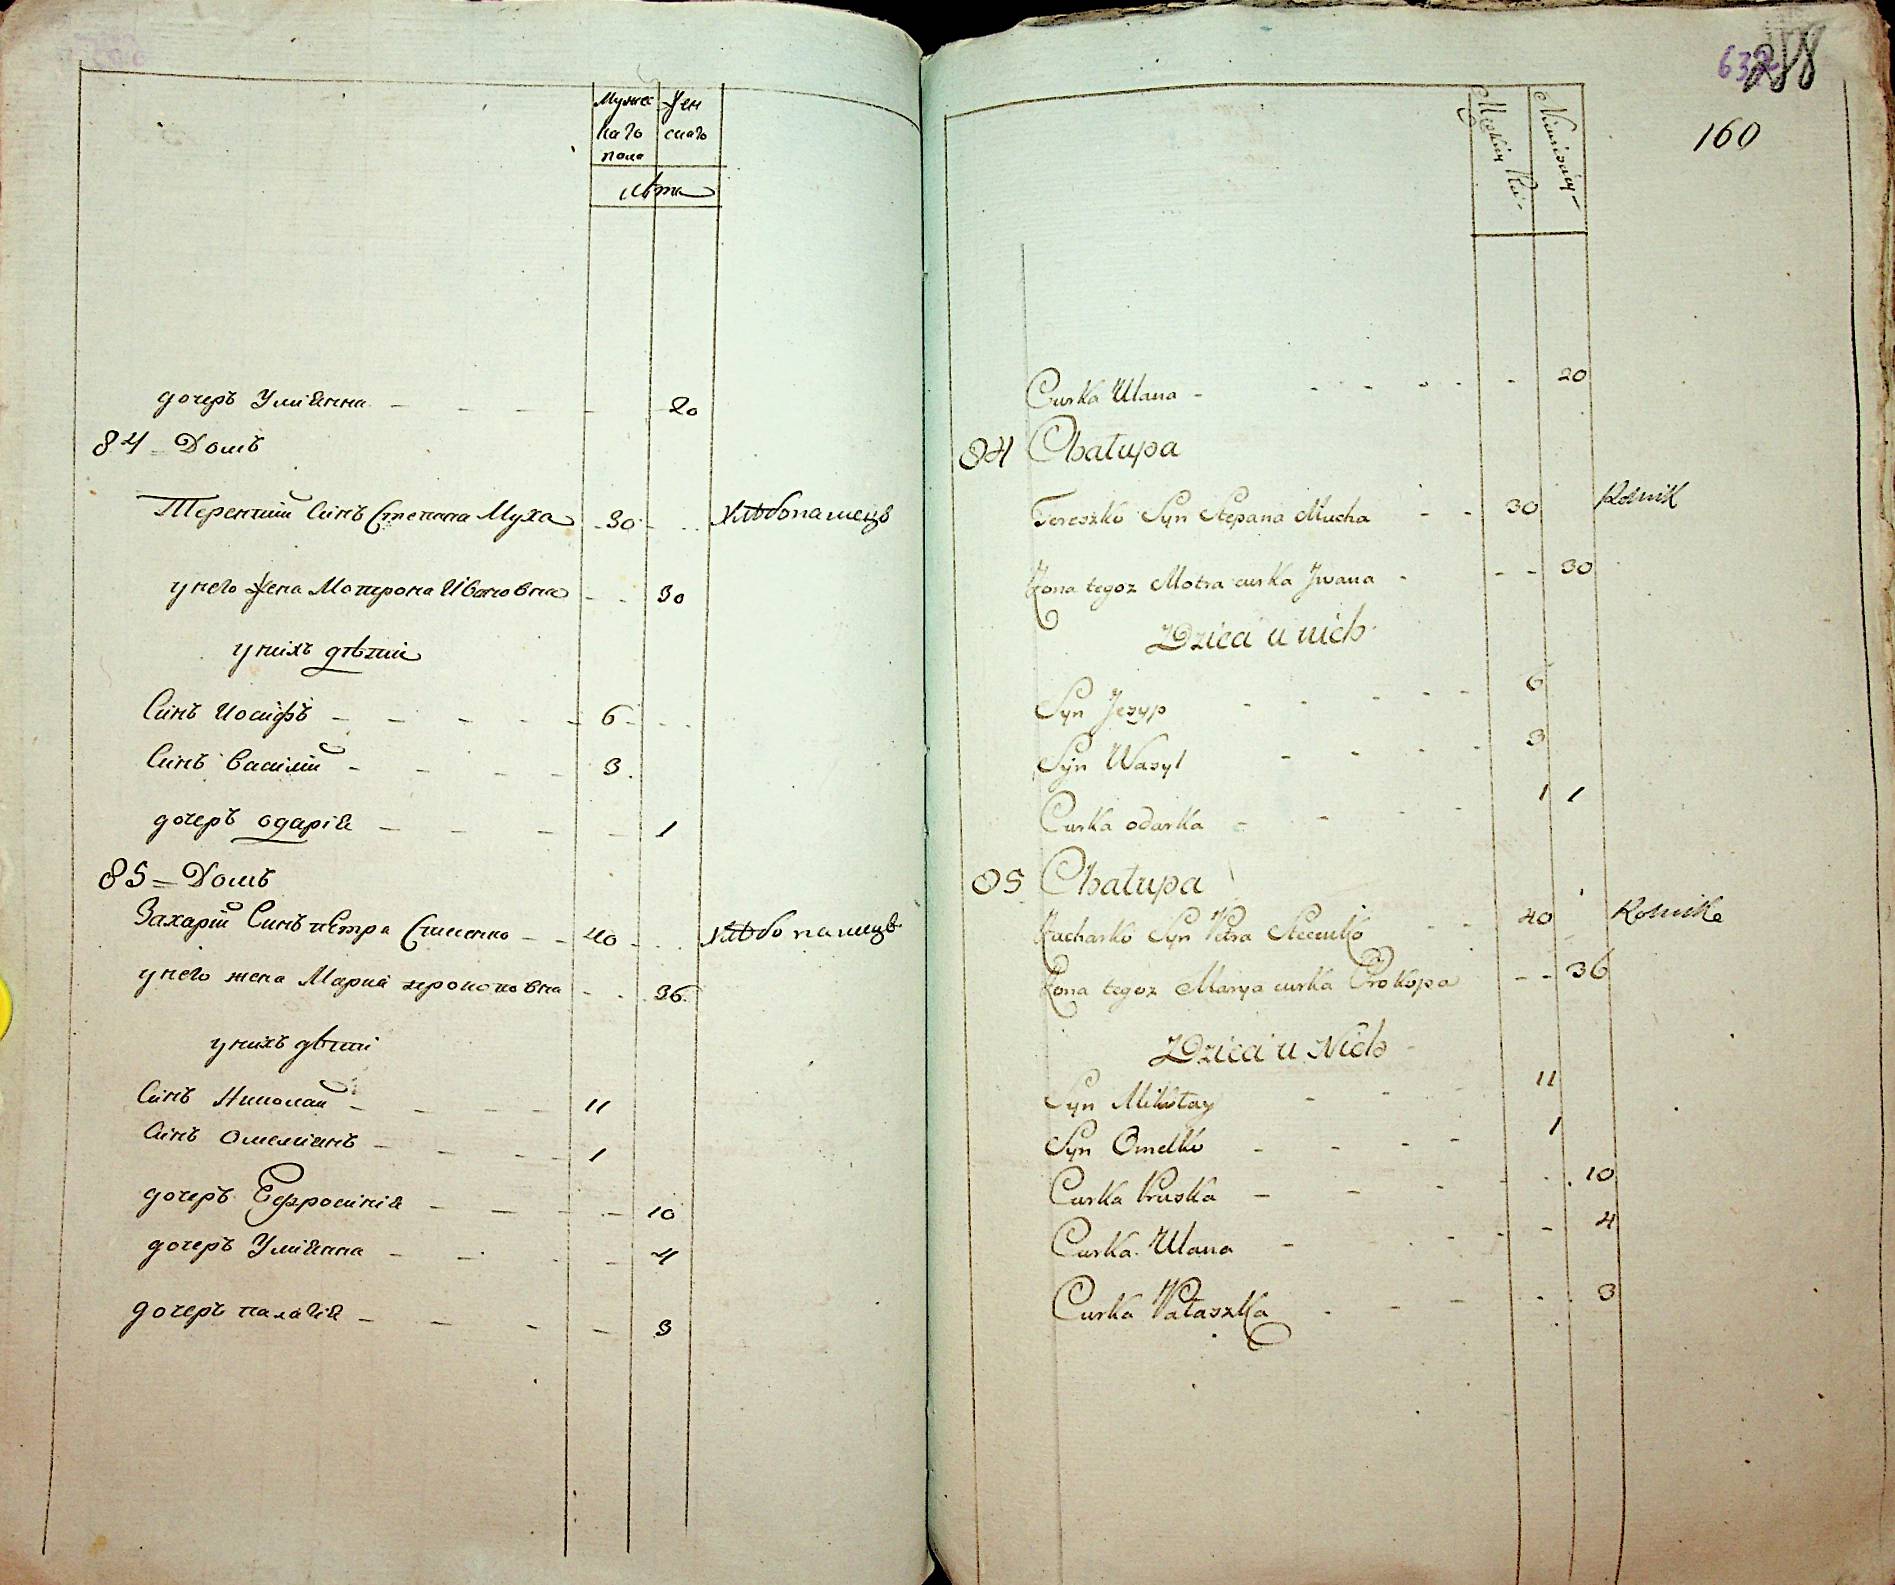 Мужес Жен
каго скаго
пола
лѣта
дочеръ Улиянна 20
84 Домъ
Терентий Синъ Степана Муха 30 хлѣбопашецъ
у него Жена Мотрона Ивановна 30
у нихъ дѣти
Синъ Иосифъ 6
Синъ Василий 3
дочеръ Одария 1
85 = Домъ
Захарий Синъ петра 40 хлѣбопашецъ
у него жена Мария прокоповна 36
у нихъ дѣти
Синъ Николай 11
Синъ Омелианъ 1
дочеръ Ефросиния 10
дочеръ Улиянна 4
дочеръ палагия 3
288
160
Curka Ulana 20
84 Chałupa
Tereszko Syn Stepana Mucha 30 Rolnik
Żona tegoz Motra curka Jwana 30
Dzieci u nich
Syn Jezyp 6
Syn Wasyl 3
Curka odarka 1 1
85 Chałupa
Zacharko Syn Petra 40 Rolnik
Żona tegoz Marya curka Prokopa 36
Dzieci u Nich
Syn Mikołay 11
Syn Omelko 1
Curka Pruska 10
Curka Ulana 4
Curka Pałaszka 3